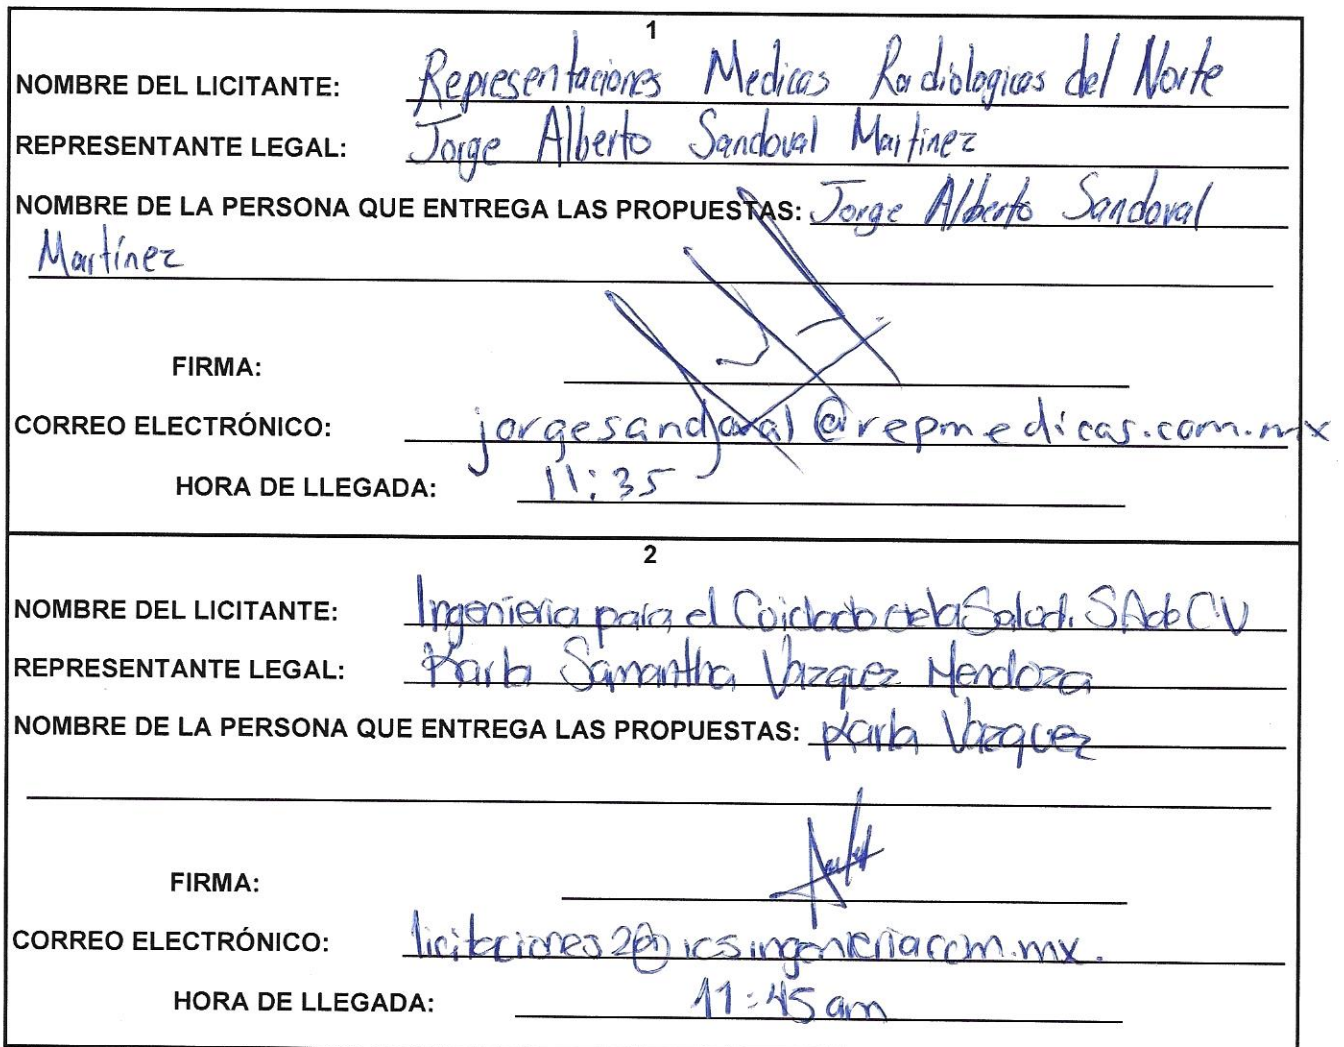 1
NOMBRE DEL LICITANTE: Representaciones Medicas Radiologicas del Norte
REPRESENTANTE LEGAL: Jorge Alberto Sandoval Martinez
NOMBRE DE LA PERSONA QUE ENTREGA LAS PROPUESTAS: Jorge Alberto Sandoval
Martínez
FIRMA:
CORREO ELECTRÓNICO: jorgesandoval@repmedicas.com.mx
HORA DE LLEGADA: 11:35
2
NOMBRE DEL LICITANTE: Ingenieria para el Coidado de la Salud. SA de CV
REPRESENTANTE LEGAL: Karla Samantha Vazquez Mendoza
NOMBRE DE LA PERSONA QUE ENTREGA LAS PROPUESTAS: Karla Vazquez
FIRMA:
CORREO ELECTRÓNICO: licitaciones2@icsingenieria.com.mx.
HORA DE LLEGADA: 11:45 am